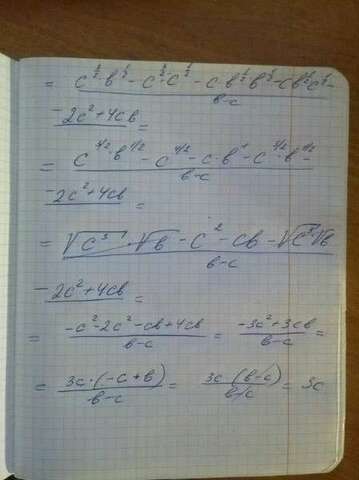 = c^{3/2}·b^{1/2} - c^{3/2}·c^{1/2} - c b^{1/2} b^{1/2} - c b^{1/2} c^{1/2} -
b-c
- 2c² + 4cb =
= c^{3/2}·b^{1/2} - c^{4/2} - c·b¹ - c^{3/2}·b^{1/2} -
b-c
- 2c² + 4cb =
= √c³·√b - c² - cb - √c³·√b
b-c
- 2c² + 4cb =
= -c²-2c²-cb+4cb = -3c²+3cb =
b-c b-c
= 3c·(-c+b) = 3c·(b-c) = 3c
b-c b-c